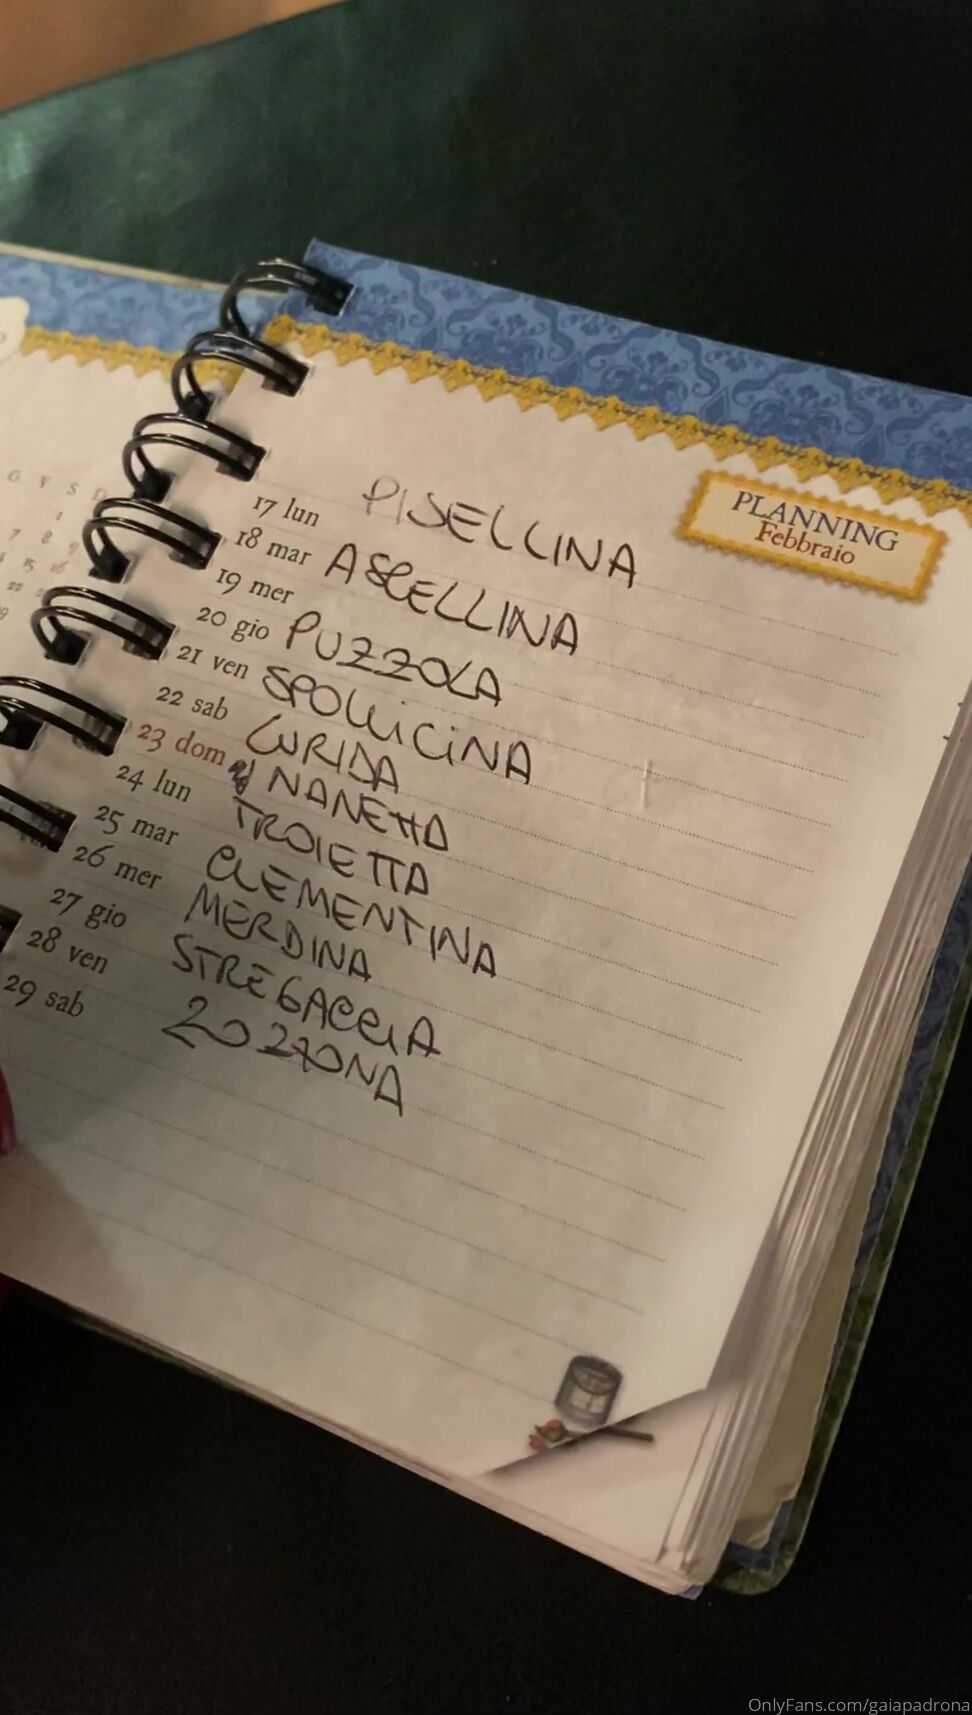 G V S D
1
7 8 9
15 16
PLANNING
Febbraio
17 lun PISELLINA
18 mar ASCELLINA
19 mer
20 gio PUZZOLA
21 ven SPOLLICINA
22 sab LURIDA
23 dom NANETTA
24 lun TROIETTA
25 mar CLEMENTINA
26 mer MERDINA
27 gio STREGACCIA
28 ven ZOZZONA
29 sab
OnlyFans.com/gaiapadrona